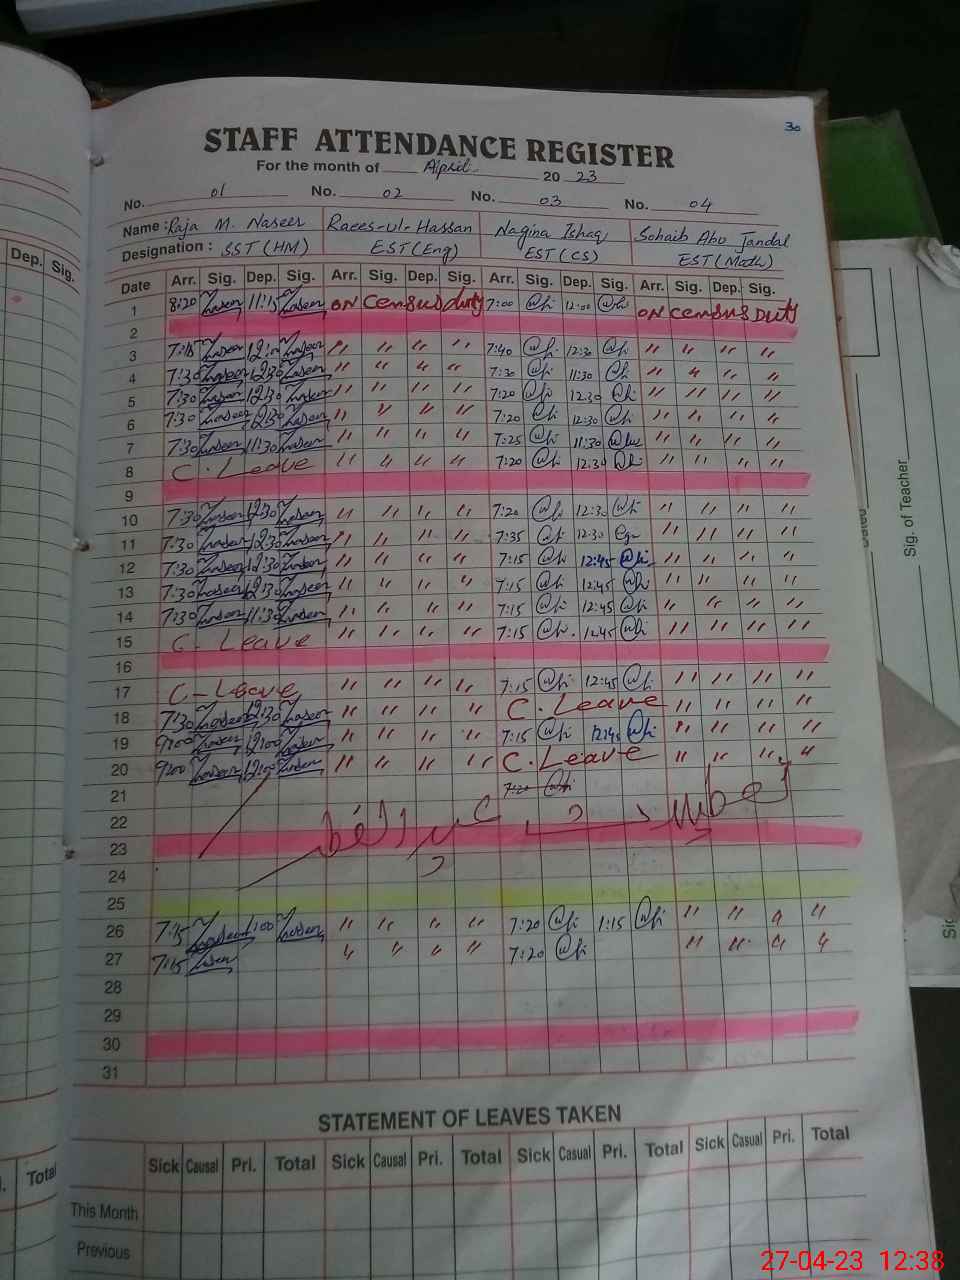 30
STAFF ATTENDANCE REGISTER
For the month of April 20 23
No. 01 No. 02 No. 03 No. 04
Name : Raja M. Naseer Raees-ul-Hassan Nagina Ishaq Sohaib Abu Jandal
Designation : SST (HM) EST (Eng) EST (CS) EST (Math)
Date Arr. Sig. Dep. Sig. Arr. Sig. Dep. Sig. Arr. Sig. Dep. Sig. Arr. Sig. Dep. Sig.
1 8:20 Naseer 11:15 Naseer on census duty 7:00 12:00 on census duty
2
3 7:15 Naseer Naseer " " " " 7:40 12:30 " " " "
4 7:30 Naseer 12:30 Naseer " " " " 7:30 11:30 " " " "
5 7:30 Naseer 12:30 Naseer " " " " 7:20 12:30 " " " "
6 7:30 Naseer 12:30 Naseer " " " " 7:20 12:30 " " " "
7 7:30 Naseer 11:30 Naseer " " " " 7:25 11:30 " " " "
8 C. Leave " " " " 7:20 12:30 " " " "
9
10 7:30 Naseer 12:30 Naseer " " " " 7:20 12:30 " " " "
11 7:30 Naseer 12:30 Naseer " " " " 7:35 12:30 " " " "
12 7:30 Naseer 12:30 Naseer " " " " 7:15 12:45 " " " "
13 7:30 Naseer 12:30 Naseer " " " " 7:15 12:45 " " " "
14 7:30 Naseer 11:30 Naseer " " " " 7:15 12:45 " " " "
15 C. Leave " " " " 7:15 12:45 " " " "
16
17 C-Leave " " " " 7:15 12:45 " " " "
18 7:30 Naseer 12:30 Naseer " " " " C. Leave " " " "
19 9:00 Naseer 12:00 Naseer " " " " 7:15 12:45 " " " "
20 9:00 Naseer 12:00 Naseer " " " " C. Leave " " " "
21 7:20
22 تعطیلات عید الفطر
23
24
25
26 7:15 Naseer 1:00 Naseer " " " " 7:20 1:15 " " " "
27 7:15 Naseer " " " " 7:20 " " " "
28
29
30
31
STATEMENT OF LEAVES TAKEN
Sick Causal Pri. Total Sick Causal Pri. Total Sick Casual Pri. Total Sick Casual Pri. Total
This Month
Previous
Dep. Sig.
Total
Sig. of Teacher
27-04-23 12:38